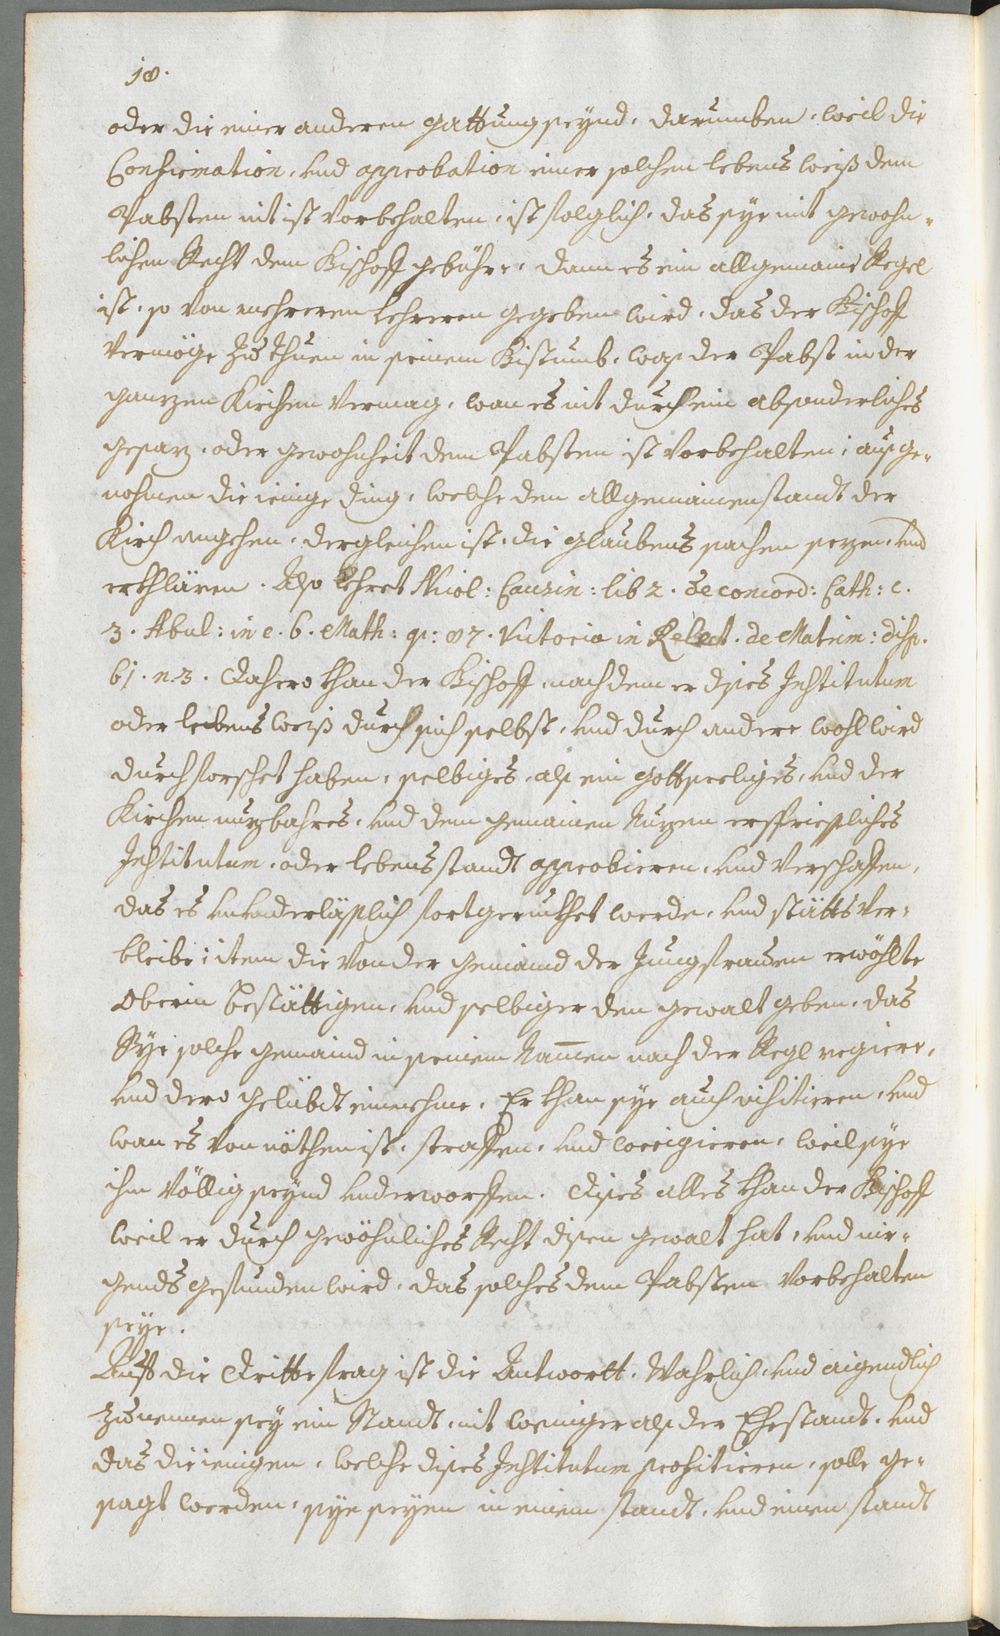 18.
oder die einer anderen gattung seynd, darumben, weil die
Confirmation, und approbation einer solchen lebens weiß dem
Pabsten nit ist vorbehalten, ist folglich, das sye mit gewohn-
lichen Recht dem Bischoff gebühre, dann es ein allgemaine Regel
ist, so von mehreren Lehreren gegeben wird, das der Bischoff
vermöge zu thuen in seinem Bistumb, was der Pabst in der
ganzen Kirchen vermag, wan es nit durch ein absonderliches
gesaz, oder gewohnheit dem Pabsten ist vorbehalten; ausge-
nohmen die ienige ding, welche den allgemainen standt der
Kirch angehen, dergleichen ist, die glaubens sachen sezen, und
erkhlären. Also lehret Nicol: Causin: lib 2. de concord: Cath: c.
3. Abul: in c. 6. Math: q: 87. Victoria in Relect. de Matrim: disp.
61. n. 3. Dahero khan der Bischoff, nachdem er dises Institutum
oder lebens weiß durch sich selbst, und durch andere wohl wird
durchforschet haben, selbiges, als ein gottseeliges, und der
Kirchen nuzbahres, und dem gemainen Nuzen ersprießliches
Institutum, oder lebensstandt approbieren, und verschaffen,
das es ununderläßlich fortgeruckhet werde, und stätts ver-
bleibe; item die von der gemaind der Jungfrauen erwöhlte
Oberin bestättigen, und selbiger den gewalt geben, das
Sye solche gemaind in seinem Nammen nach der Regl regiere,
und dero gelübdt einnehme. Er khan sye auch visitieren, und
wan es von nöthen ist, straffen, und corrigieren, weil sye
ihm völlig seynd underworffen. Dises alles khan der Bischoff
weil er durch gewöhnliches Recht disen gewalt hat, und nir-
gends gefunden wird, das solches dem Pabsten vorbehalten
seye.
Auff die Dritte frag ist die Antwortt. Wahrlich, und aigendlich
zu nennen sey ein Standt, nit weniger als der Ehestandt, und
das dieienigen, welche dises Institutum profitieren, solle ge-
sagt werden, sye seyen in einem standt, und einen standt